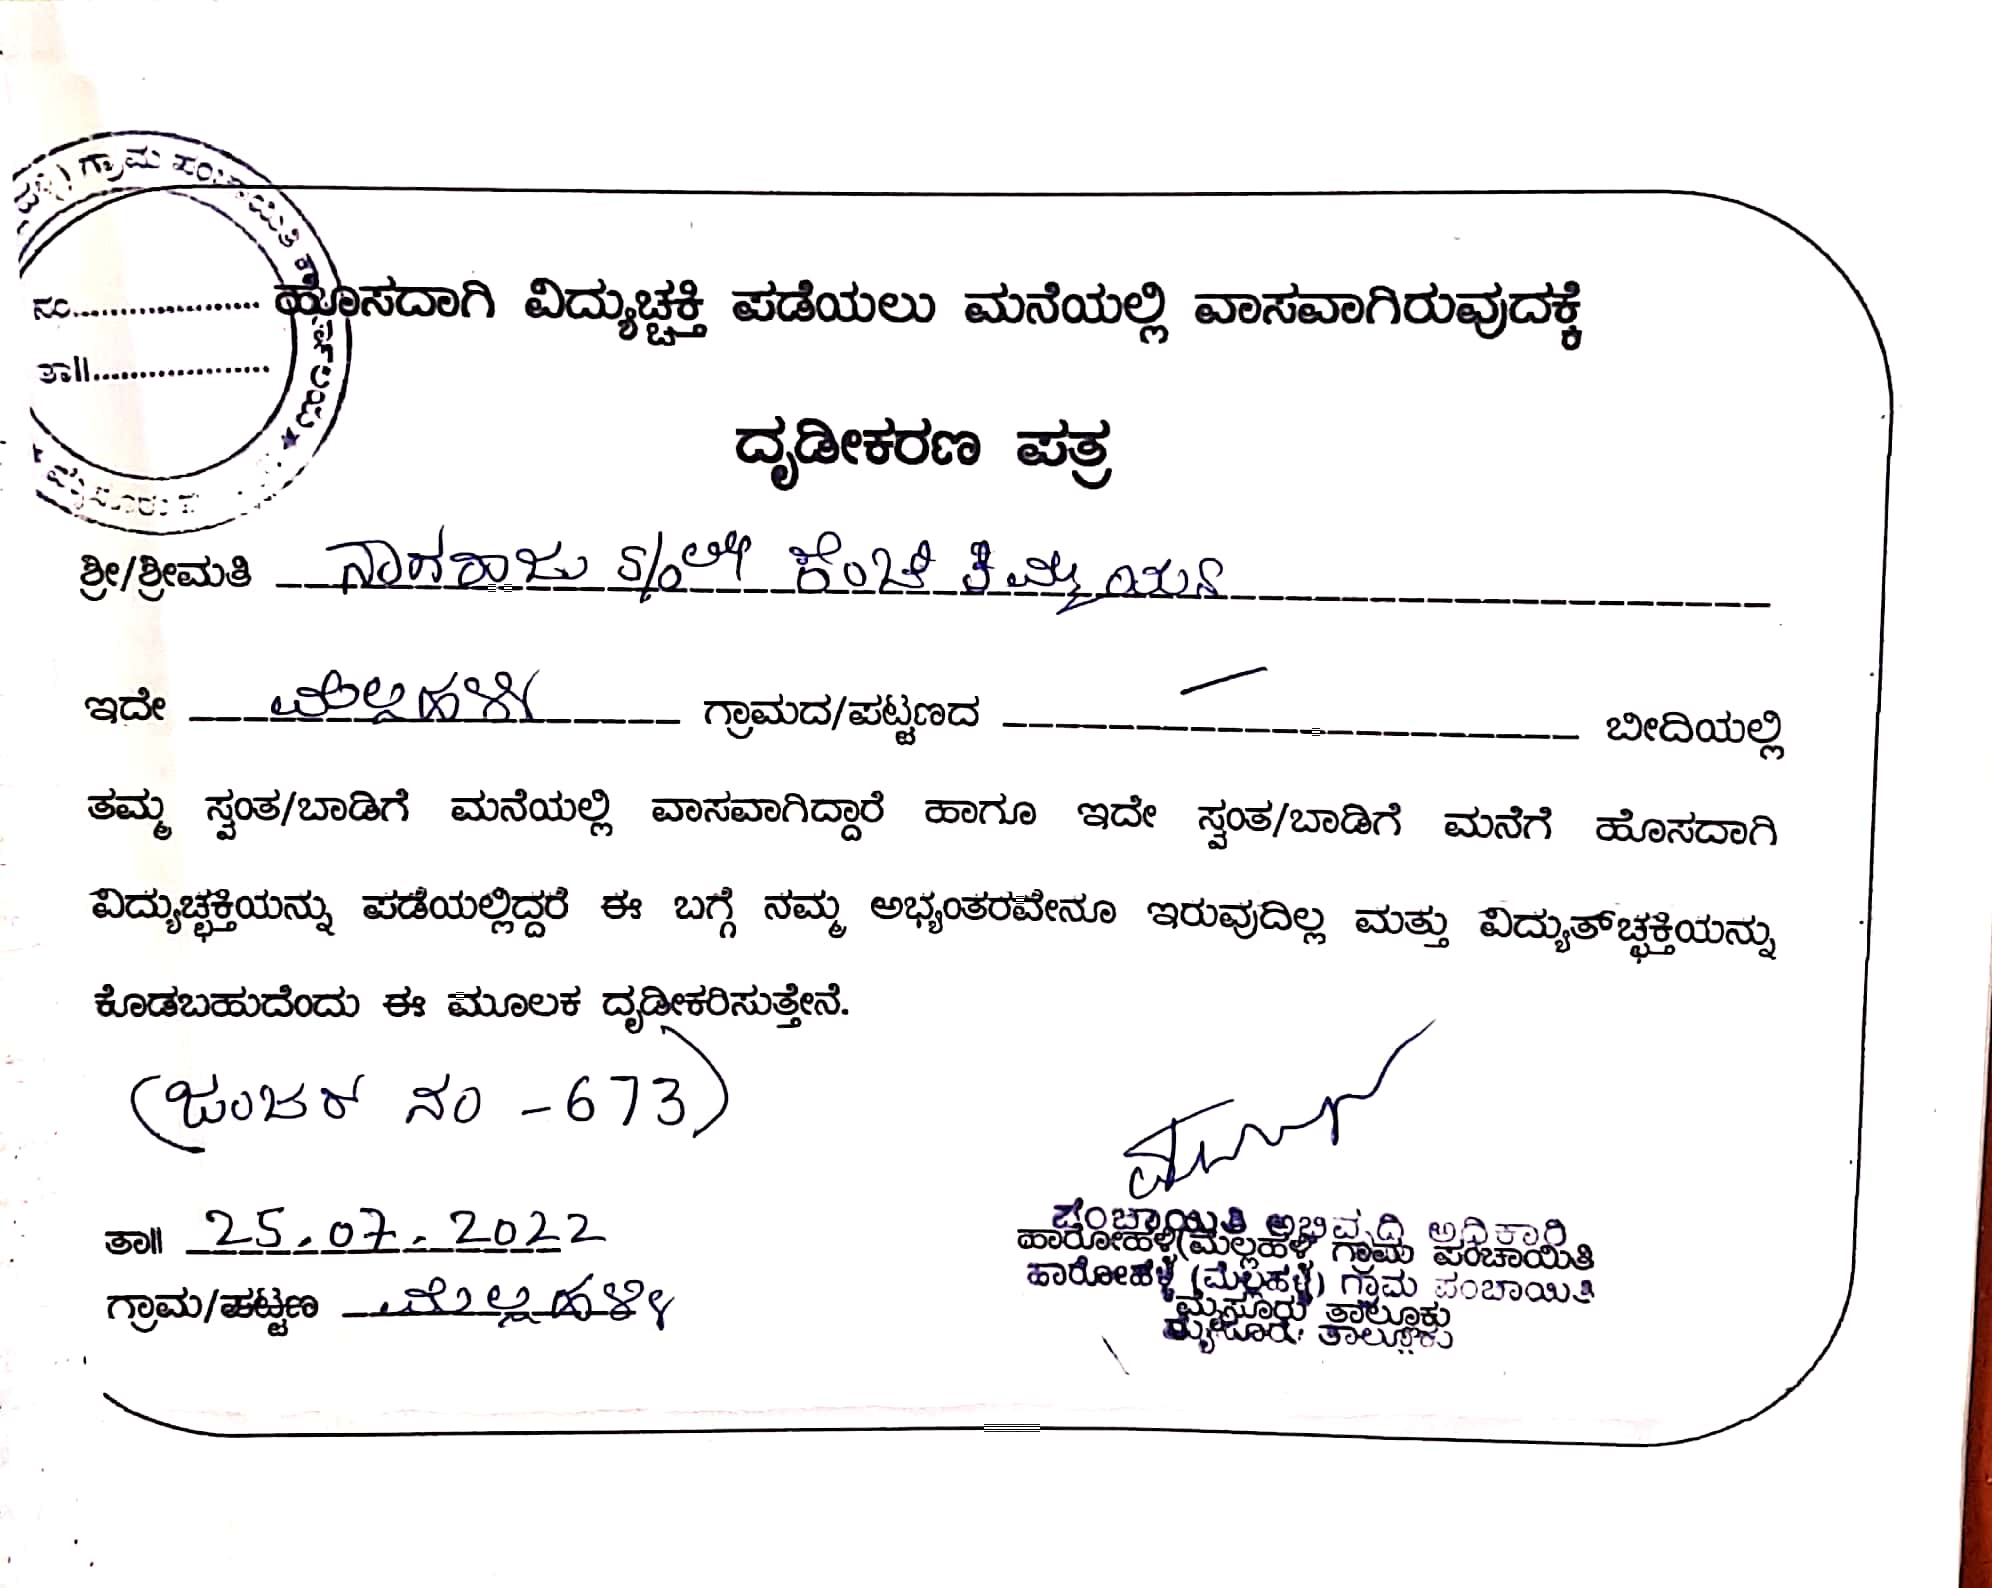 ಗ್ರಾಮ ಪಂಚಾಯಿತಿ
ನಂ.................... ಹೊಸದಾಗಿ ವಿದ್ಯುಚ್ಛಕ್ತಿ ಪಡೆಯಲು ಮನೆಯಲ್ಲಿ ವಾಸವಾಗಿರುವುದಕ್ಕೆ
ತಾ||....................
ದೃಡೀಕರಣ ಪತ್ರ
ಶ್ರೀ/ಶ್ರೀಮತಿ ನಾಗರಾಜು S/o ಲೇ ಕೆಂಚ ತಿಮ್ಮಯ್ಯ
ಇದೇ ಮೆಲ್ಲಹಳ್ಳಿ ಗ್ರಾಮದ/ಪಟ್ಟಣದ — ಬೀದಿಯಲ್ಲಿ
ತಮ್ಮ ಸ್ವಂತ/ಬಾಡಿಗೆ ಮನೆಯಲ್ಲಿ ವಾಸವಾಗಿದ್ದಾರೆ ಹಾಗೂ ಇದೇ ಸ್ವಂತ/ಬಾಡಿಗೆ ಮನೆಗೆ ಹೊಸದಾಗಿ
ವಿದ್ಯುಚ್ಛಕ್ತಿಯನ್ನು ಪಡೆಯಲ್ಲಿದ್ದರೆ ಈ ಬಗ್ಗೆ ನಮ್ಮ ಅಭ್ಯಂತರವೇನೂ ಇರುವುದಿಲ್ಲ ಮತ್ತು ವಿದ್ಯುತ್‌ಚ್ಛಕ್ತಿಯನ್ನು
ಕೊಡಬಹುದೆಂದು ಈ ಮೂಲಕ ದೃಡೀಕರಿಸುತ್ತೇನೆ.
(ಜಂಜರ್ ನಂ - 673)
ತಾ|| 25.07.2022
ಗ್ರಾಮ/ಪಟ್ಟಣ ಮೆಲ್ಲಹಳ್ಳಿ
ಪಂಚಾಯಿತಿ ಅಭಿವೃದ್ಧಿ ಅಧಿಕಾರಿ
ಹಾರೋಹಳ್ಳಿ(ಮೆಲ್ಲಹಳ್ಳಿ) ಗ್ರಾಮ ಪಂಚಾಯಿತಿ
ಹಾರೋಹಳ್ಳಿ (ಮೆಲ್ಲಹಳ್ಳಿ) ಗ್ರಾಮ ಪಂಚಾಯಿತಿ
ಮೈಸೂರು ತಾಲ್ಲೂಕು
ಮೈಸೂರು ತಾಲ್ಲೂಕು